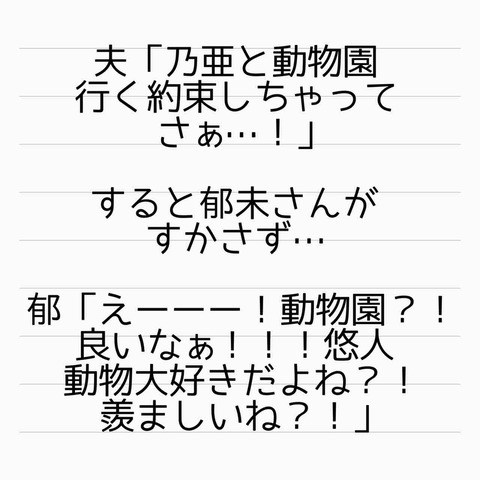 夫「乃亜と動物園
行く約束しちゃって
さぁ…！」
すると郁未さんが
すかさず…
郁「えーーー！動物園？！
良いなぁ！！！悠人
動物大好きだよね？！
羨ましいね？！」